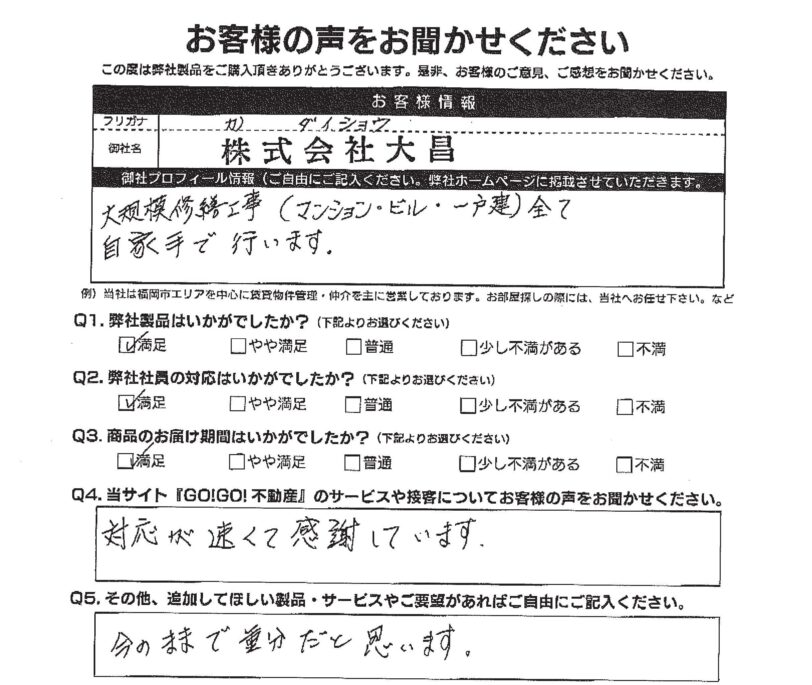 お客様の声をお聞かせください
この度は弊社製品をご購入頂きありがとうございます。是非、お客様のご意見、ご感想をお聞かせください。
お客様情報
フリガナ カ) ダイショウ
御社名 株式会社大昌
御社プロフィール情報（ご自由にご記入ください。弊社ホームページに掲載させていただきます。
大規模修繕工事（マンション・ビル・一戸建）全て
自家手で行います.
例）当社は福岡市エリアを中心に賃貸物件管理・仲介を主に営業しております。お部屋探しの際には、当社へお任せ下さい。など
Q1. 弊社製品はいかがでしたか？（下記よりお選びください）
☑満足 □やや満足 □普通 □少し不満がある □不満
Q2. 弊社社員の対応はいかがでしたか？（下記よりお選びください）
☑満足 □やや満足 □普通 □少し不満がある □不満
Q3. 商品のお届け期間はいかがでしたか？（下記よりお選びください）
☑満足 □やや満足 □普通 □少し不満がある □不満
Q4. 当サイト『GO!GO! 不動産』のサービスや接客についてお客様の声をお聞かせください。
対応が速くて感謝しています.
Q5. その他、追加してほしい製品・サービスやご要望があればご自由にご記入ください。
今のままで重分だと思います。